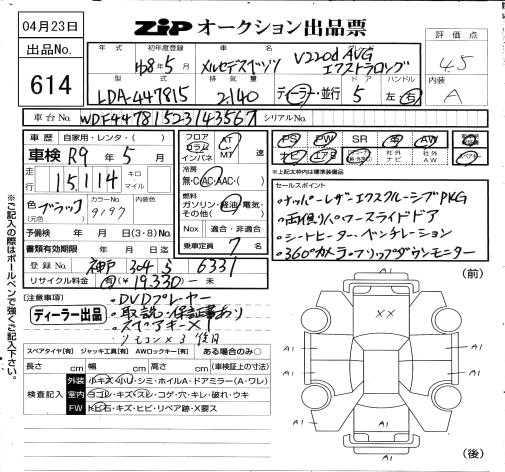 04月23日
ZiP オークション出品票
出品No.
614
年式
初年度登録
車名
グレード
評価点
H28年5月
メルセデスベンツ
V220d AVG
エクストラロング
4.5
型式
排気量
ドア
ハンドル
内装
LDA-447815
2,140
ディーラー・並行
5
左・右
A
車台No.
WDF44781523143567
シリアルNo.
車歴
自家用・レンタ・( )
車検
R9年5月
走行
15,114
キロ
マイル
色
(元色)
ブラック
カラーNo.
9197
予備検 年 月 日(3・8)モロ
書類有効期限 年 月 日
登録No.
神戸 304 ら 6331
リサイクル料金
有(¥19.330-)未
フロア
コラム
インパネ
AT
MT
速
冷房
無・C・AC・AAC・( )
燃料
ガソリン・軽油・電気・
その他( )
Nox
適合・非適合
乗車定員
7
名
PS
PW
SR
革
AW
ナビ
エアB
社外
ナビ
社外
AW
※上記太枠内は標準装備品
セールスポイント
・ナッパーレザーエクスクルーシブPKG
・両側パワースライドドア
・シートヒーター・ベンチレーション
・360°カメラ・フリップダウンモニター
(注意事項)
ディーラー出品
・DVDプレーヤー
・取説・保証書あり
・スペアキー×1
リモコン×3 使用
スペアタイヤ[有] ジャッキ工具[有] AWロックキー[有] ある場合のみ○
長さ cm
幅 cm
高さ cm
(車検証上の寸法)
検査記入
外装
小キズ・小U・シミ・ホイルA・ドアミラー(A・ワレ)
室内
ヨゴレ・キズ・スレ・コゲ・穴・キレ・破れ・ウキ
FW
トビ石・キズ・ヒビ・リペア跡・X要ス
(前)
XX
A1
A1
A1
A1
A1
A1
(後)
※ご記入の際はボールペンで強くご記入下さい。